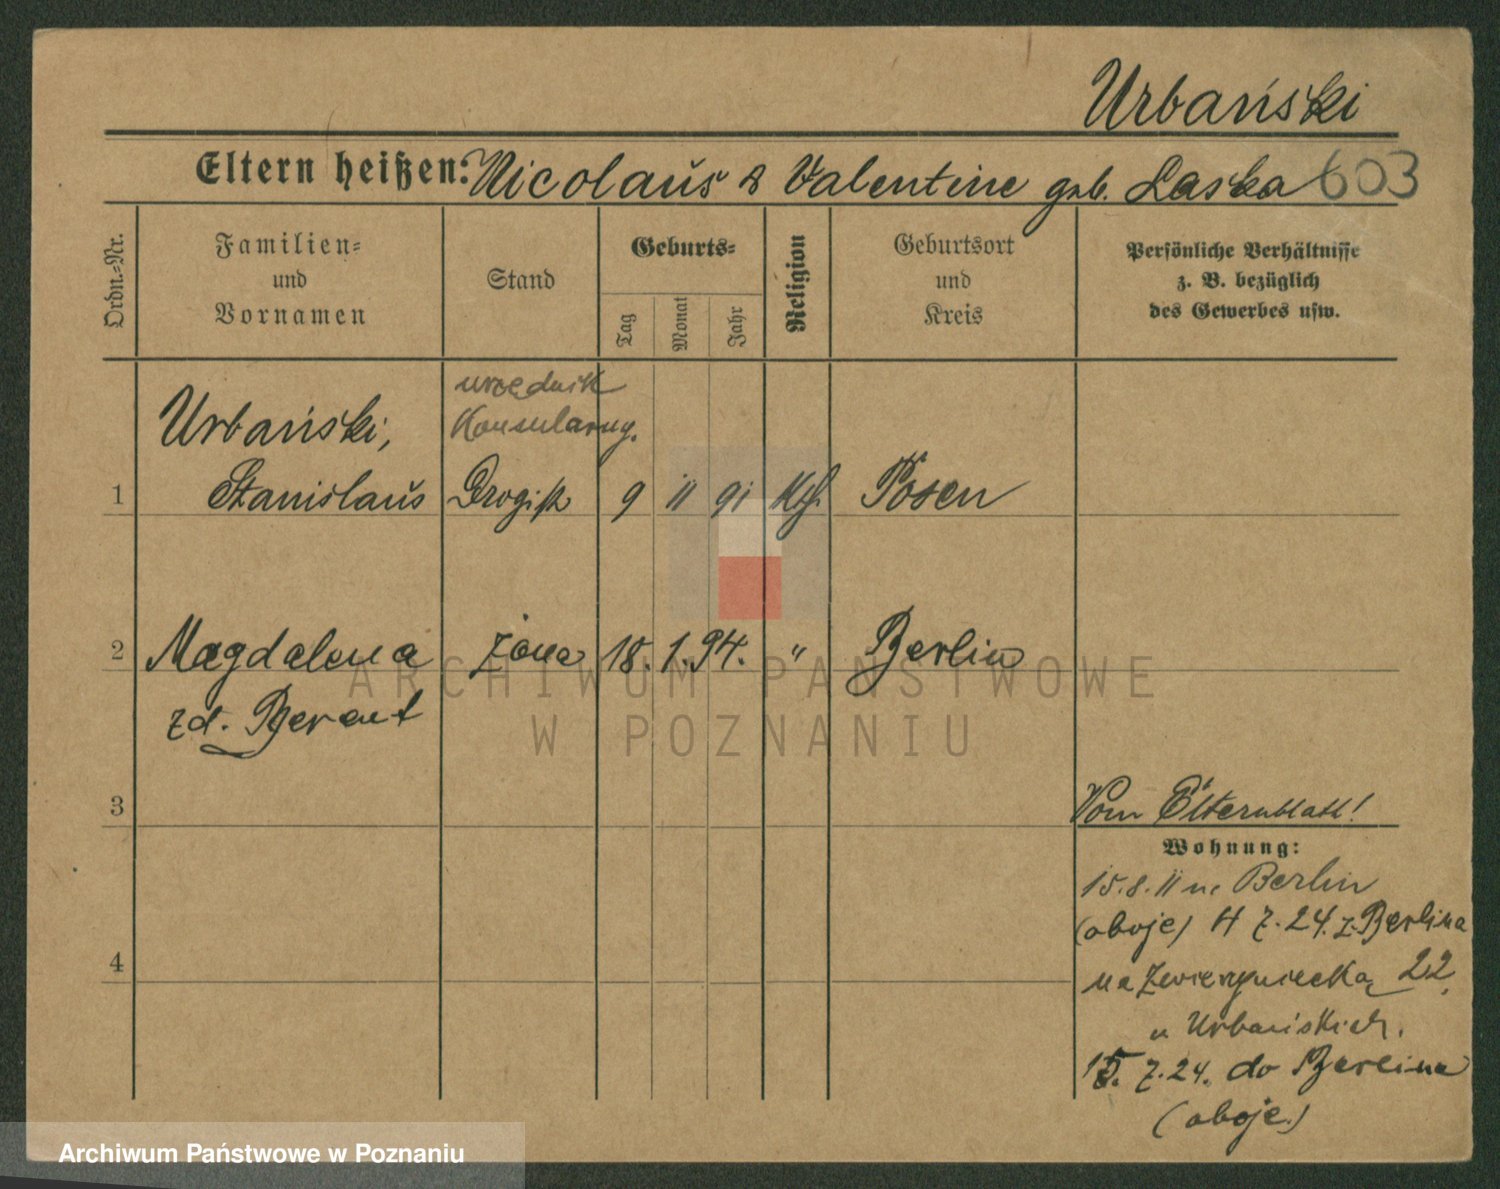 Urbański
Eltern heißen: Nicolaus & Valentine geb. Laska 603
Ordn.=Nr.
Familien=
und
Vornamen
Stand
Geburts=
Tag
Monat
Jahr
Religion
Geburtsort
und
Kreis
Persönliche Verhältnisse
z. B. bezüglich
des Gewerbes usw.
urzędnik
Konsularny.
Urbański,
1 Stanislaus Drogist 9 11 91 Kth. Posen
2 Magdalena żona 18. 1. 94. " Berlin
zd. Berent
3
Vom Elternblatt!
Wohnung:
15. 8. 11 n. Berlin
(oboje) 4 7. 24. z Berlina
4
na Zwierzyniecką 22,
u Urbańskich.
15. 7. 24. do Berlina
(oboje.)
ARCHIWUM PAŃSTWOWE
W POZNANIU
Archiwum Państwowe w Poznaniu